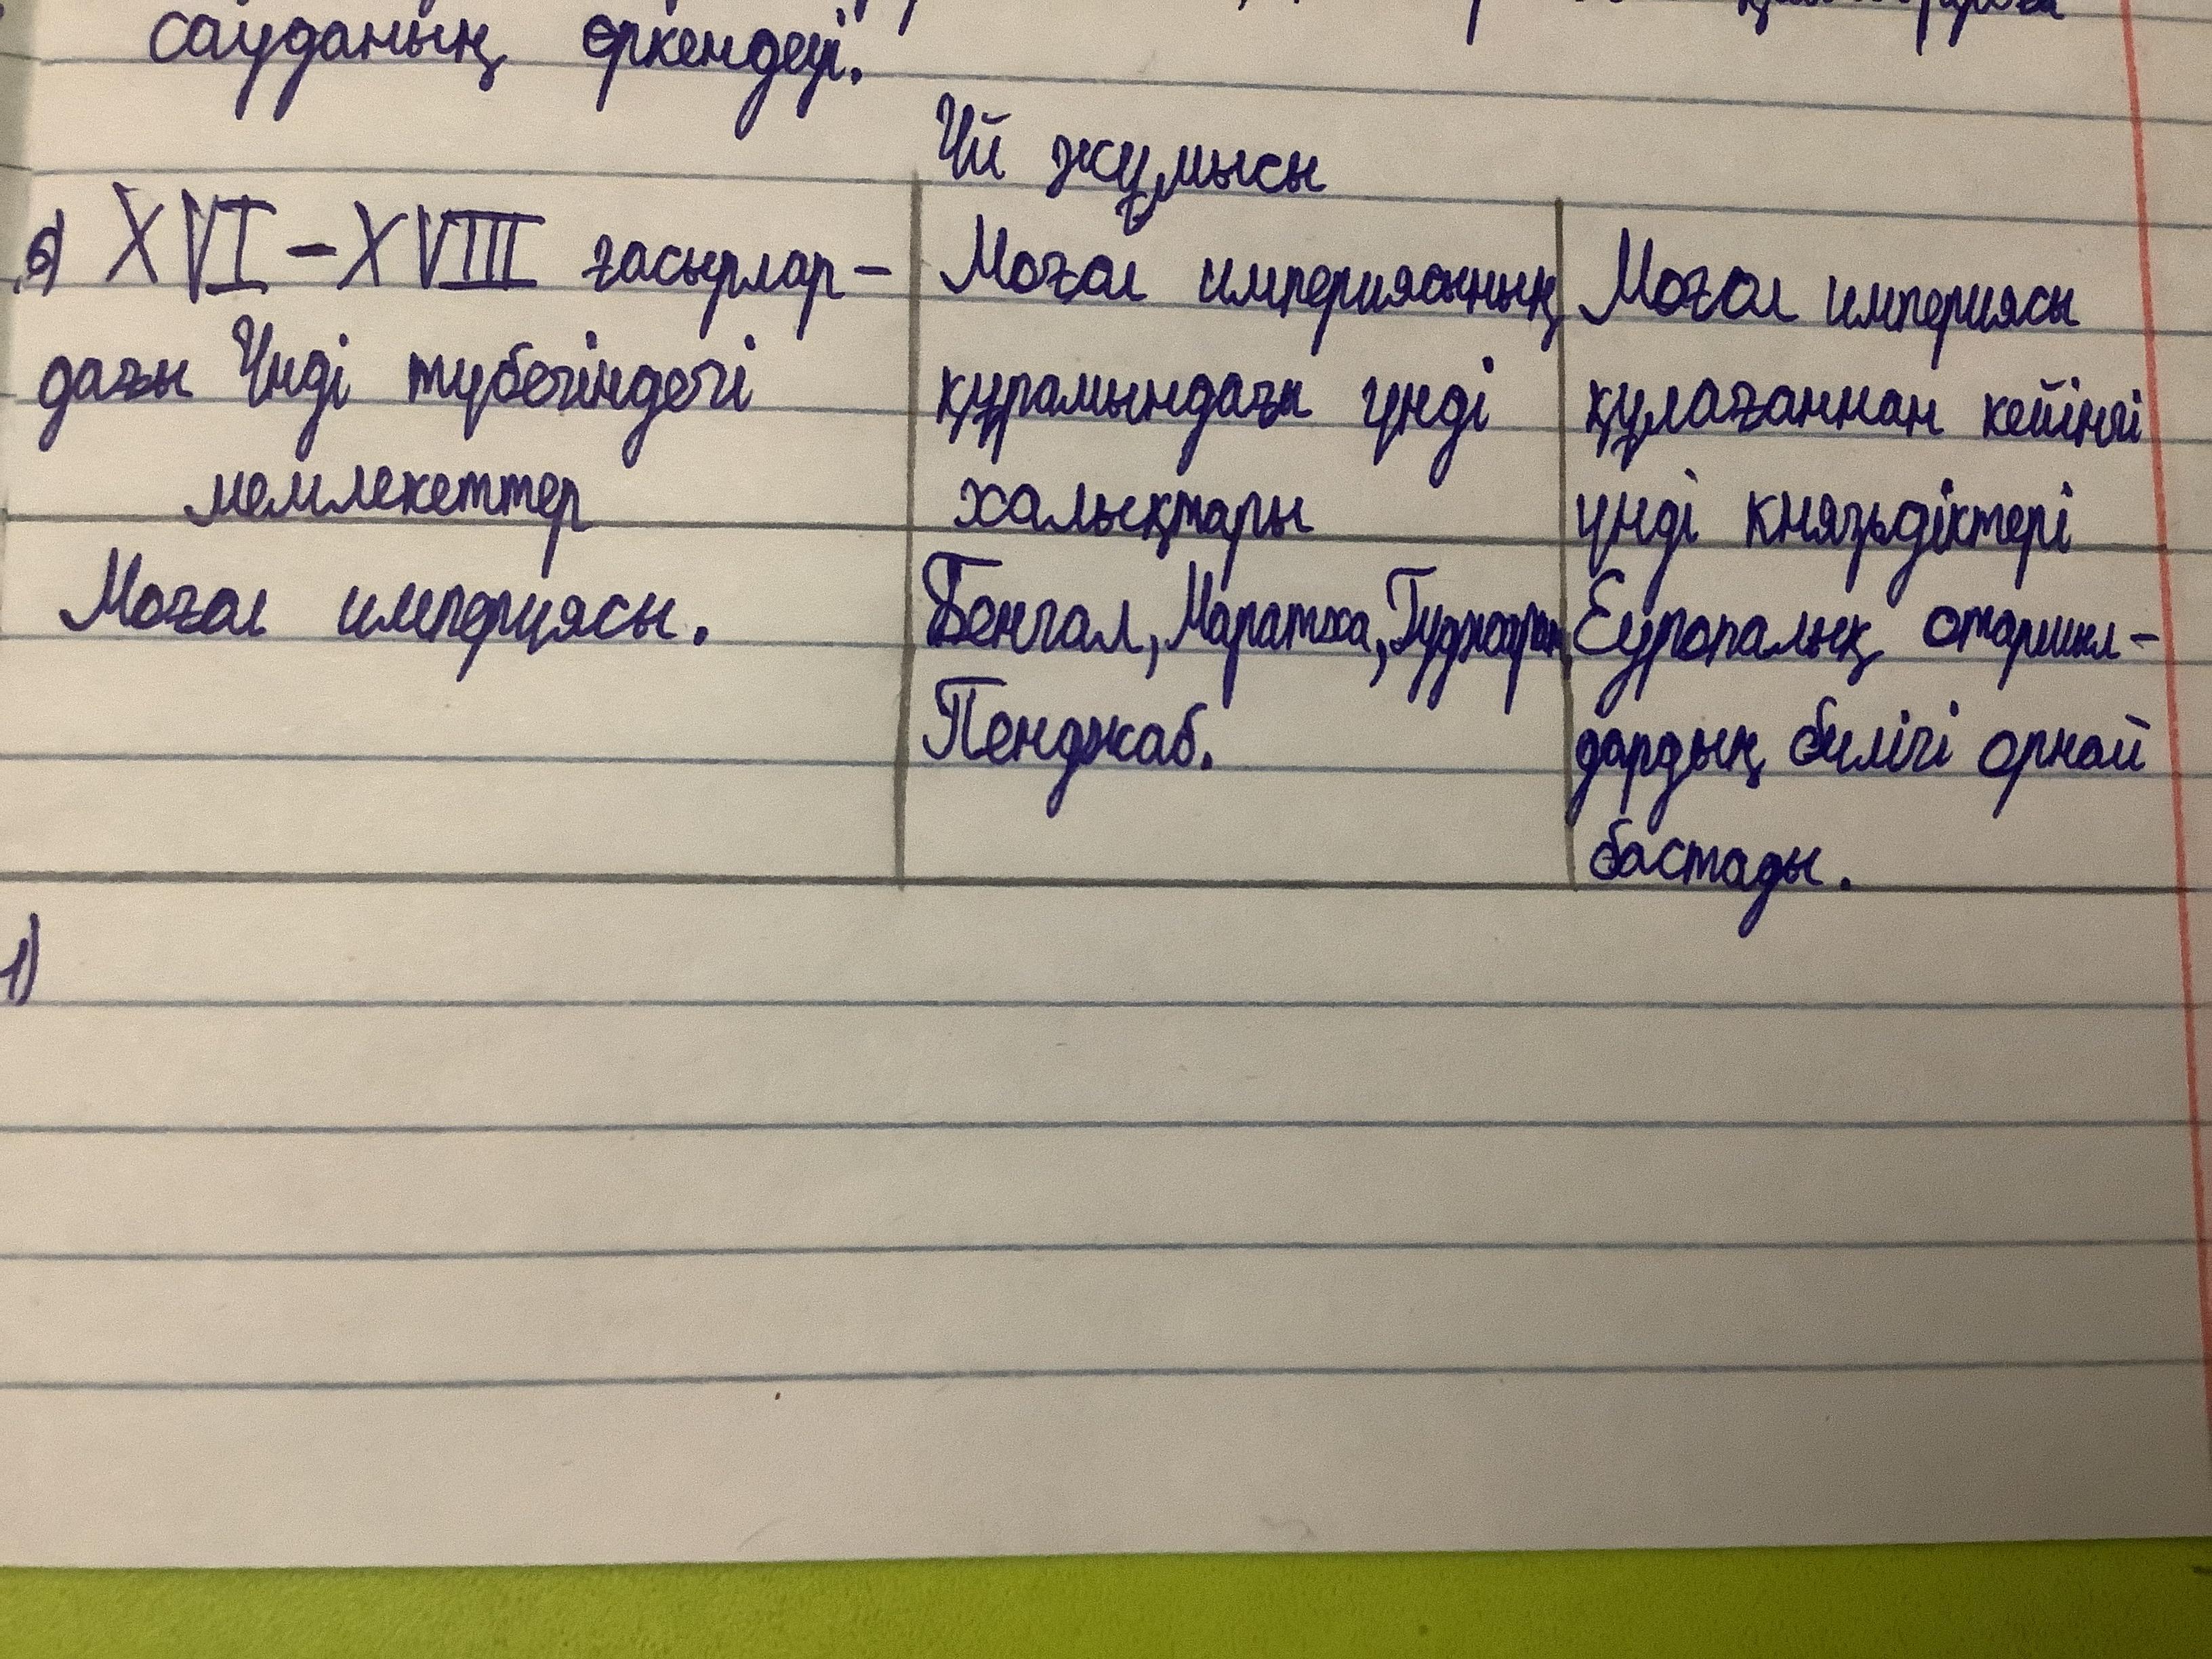 сауданың өркендеуі.
Үй жұмысы
6) XVI – XVIII ғасырлар-
дағы Үнді түбегіндегі
мемлекеттер
Моғол империясы.
Моғол империясының
құрамындағы үнді
халықтары
Бенгал, Маратха, Гуджарат,
Пенджаб.
Моғол империясы
құлағаннан кейінгі
үнді князьдіктері
Еуропалық отаршыл-
дардың билігі орнай
бастады.
1)